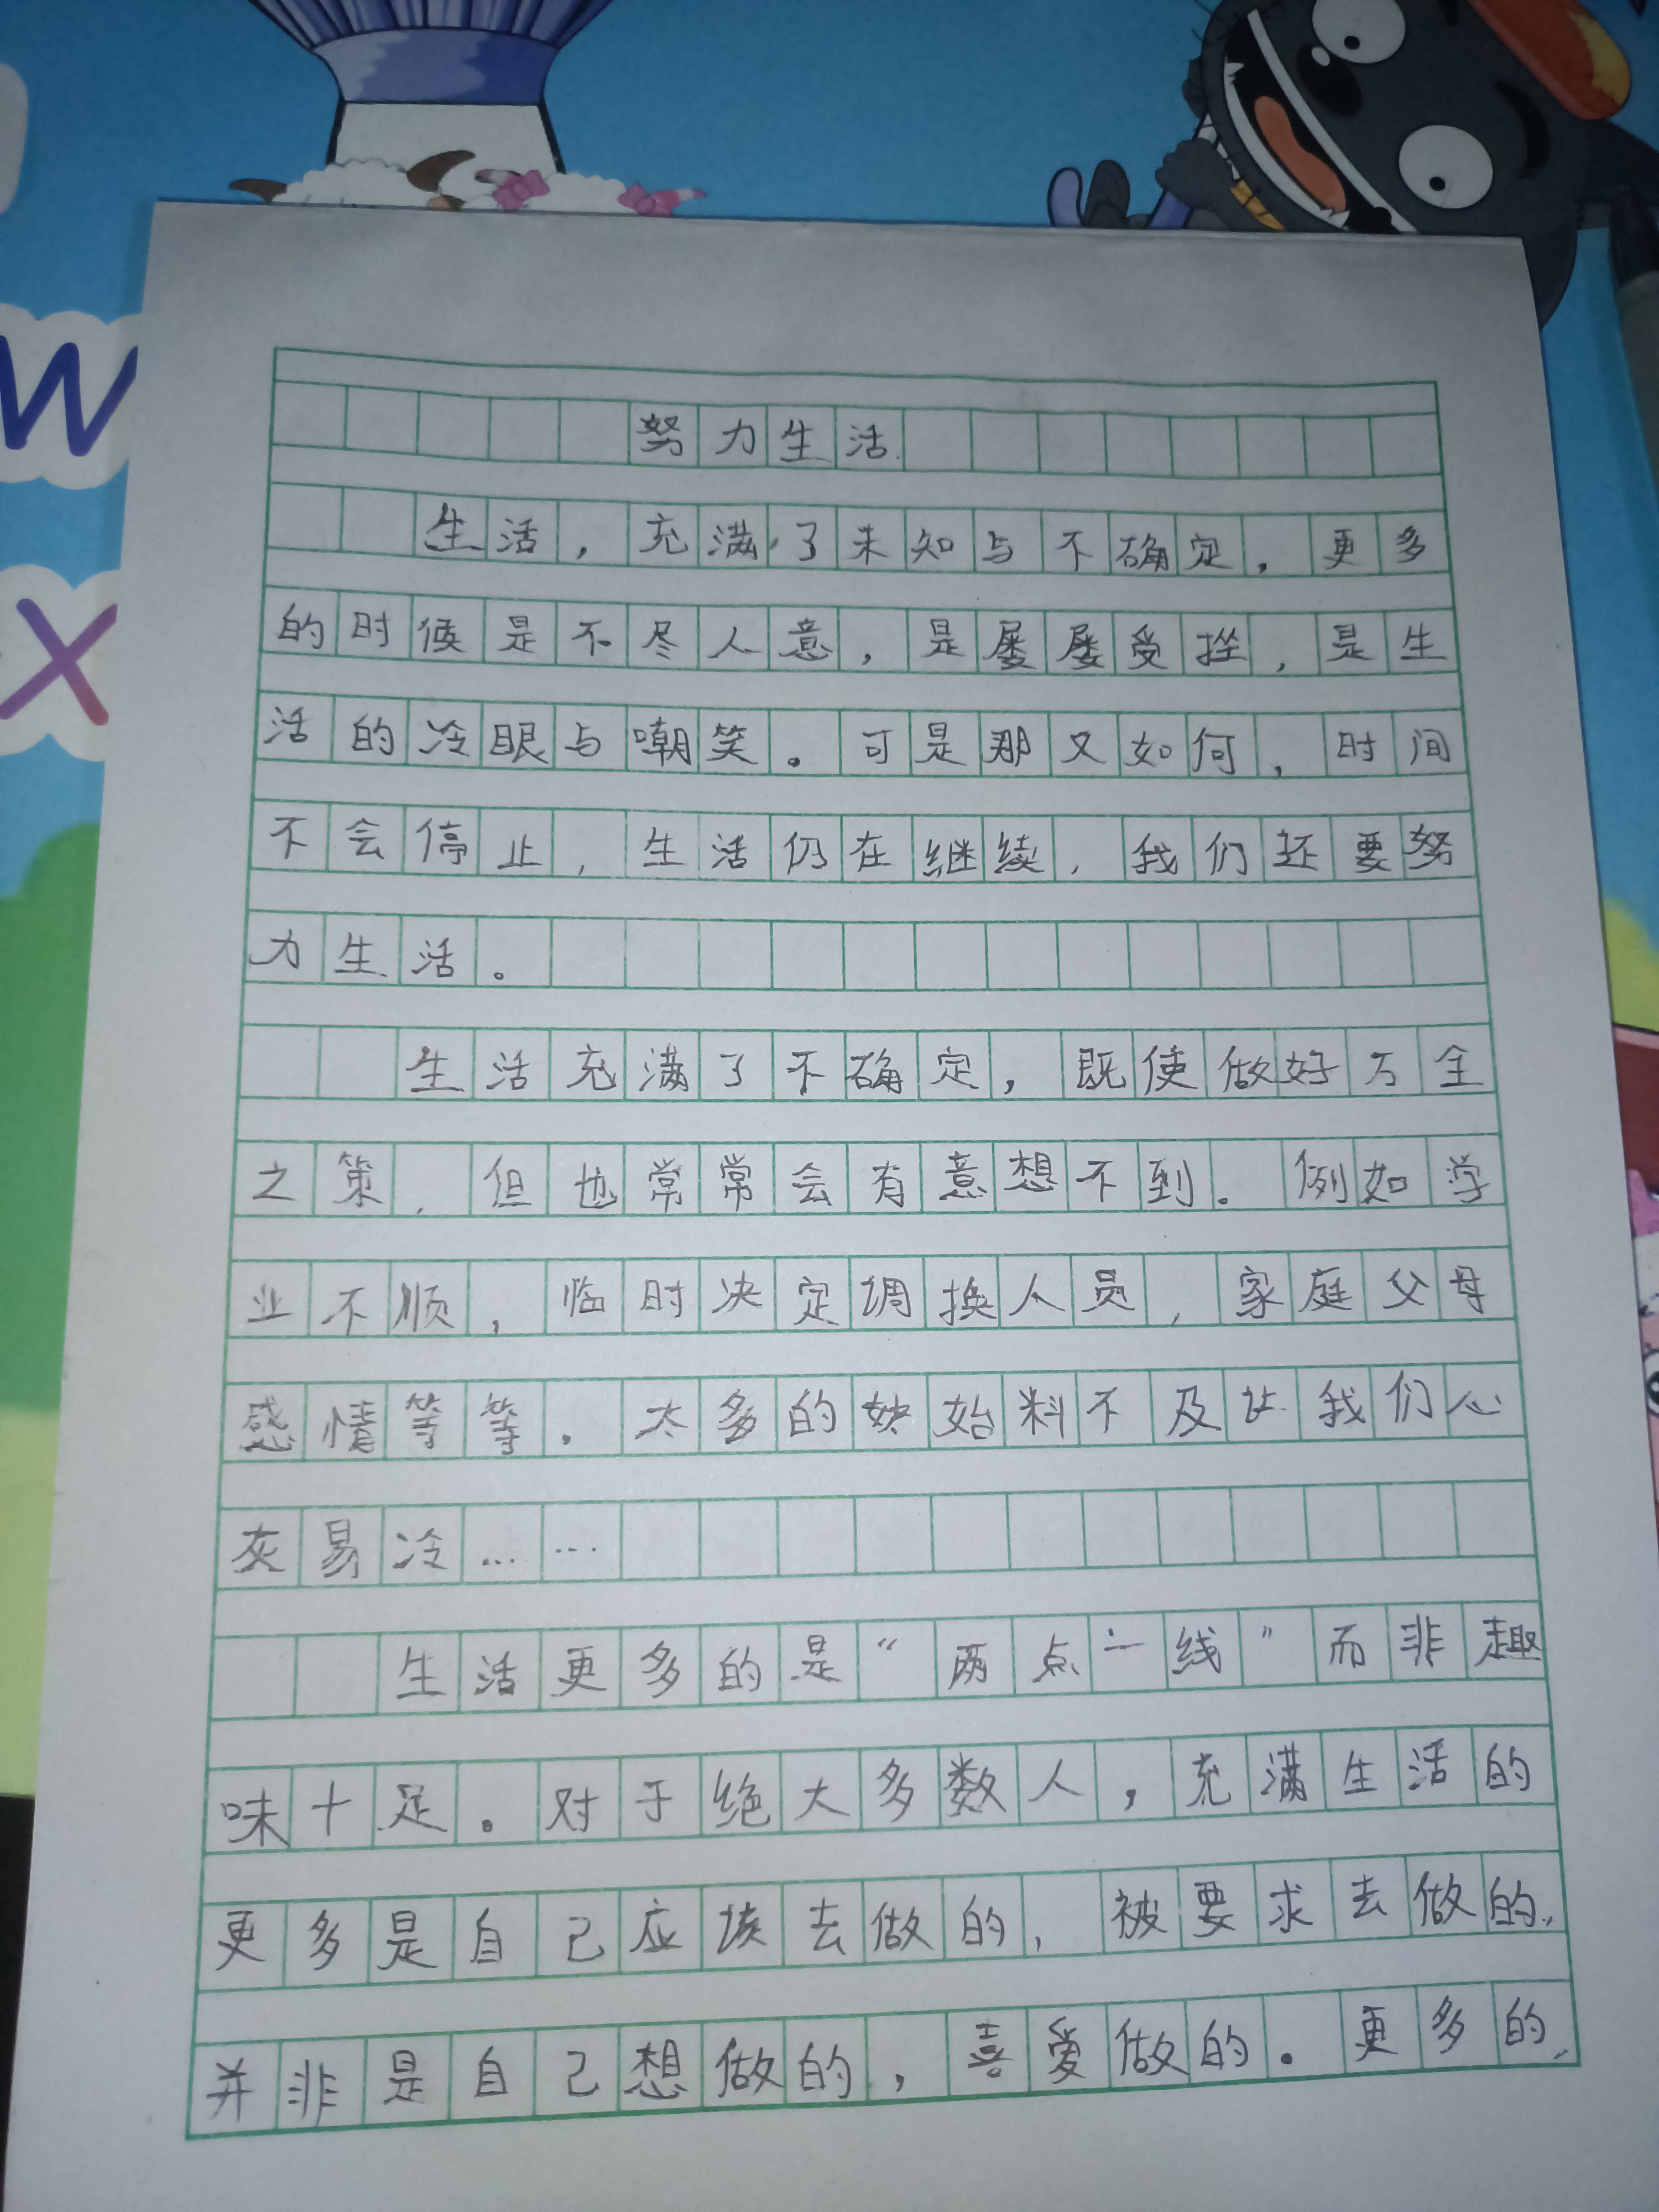 W
X
努力生活
生活，充满了未知与不确定，更多
的时候是不尽人意，是屡屡受挫，是生
活的冷眼与嘲笑。可是那又如何，时间
不会停止，生活仍在继续，我们还要努
力生活。
生活充满了不确定，既使做好万全
之策，但也常常会有意想不到。例如学
业不顺，临时决定调换人员，家庭父母
感情等等。太多的始料不及让我们心
灰易冷……
生活更多的是“两点一线”而非趣
味十足。对于绝大多数人，充满生活的
更多是自己应该去做的，被要求去做的，
并非是自己想做的，喜爱做的。更多的，